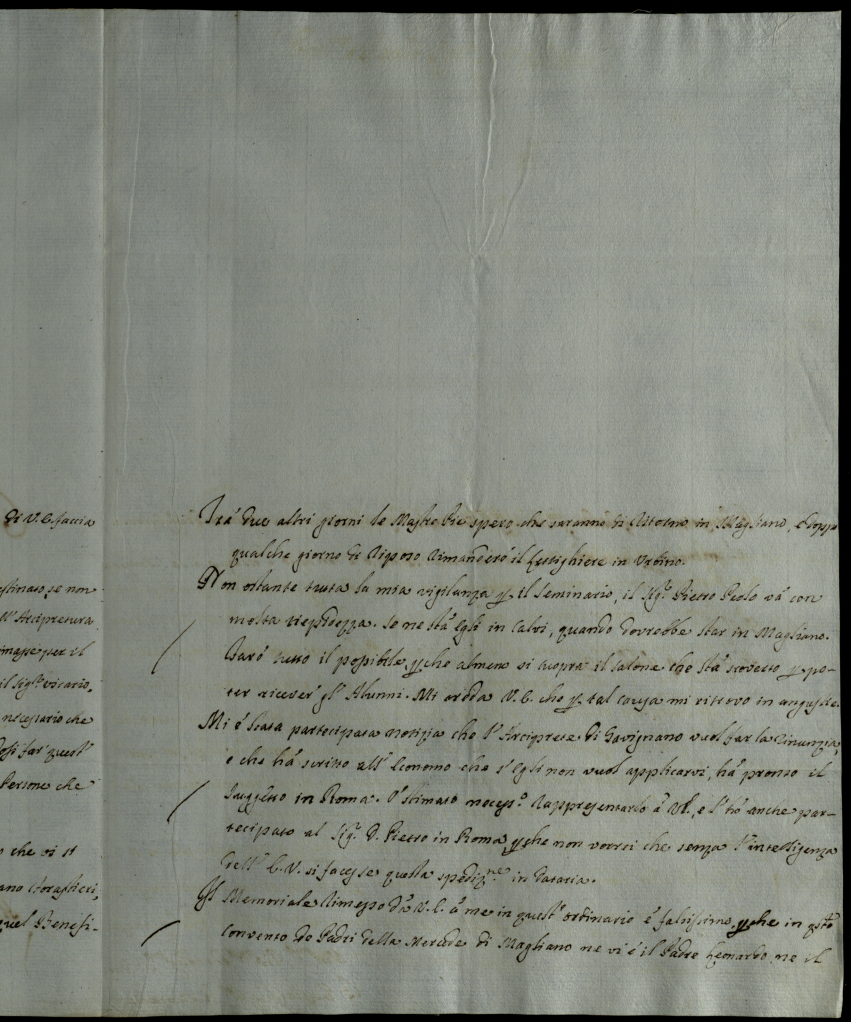 di V.E. faccia
stinato, se non
ll'Arcipretura
omasse per il
il Sigr. vicario,
necessario che
dosi far quest'
Persone che
o che vi si
ano forastieri,
quel Benefi-
Trà due altri giorni le spero che saranno di ritorno in Magliano, e doppo
qualche giorno di riposo rimanderò il lettighiere in Urbino.
Non ostante tutta la mia vigilanza p. il Seminario, il Sigr. Pietro Paolo và con
molta tiepidezza. Se ne stà egli in Calvi, quando dovrebbe star in Magliano.
Farò tutto il possibile, p.che almeno si cuopra il salone che stà scoverto p. po-
ter ricever gl'Alunni. Mi creda V.E. che p. tal causa mi ritrovo in angustie.
Mi è stata partecipata notizia che l'Arciprete di Gavignano vuol far la rinunzia,
e che hà scritto all'Economo che s'egli non vuol applicarvi, hà pronto il
suggetto in Roma. O' stimato necess.o rappresentarlo à V.E., e l'hò anche par-
tecipato al Sigr. D. Pietro in Roma, p.che non vorrei che senza l'intelligenza
dell'E.V. si facesse questa spediz.ne in Dataria.
Il Memoriale rimesso da V.E. à me in quest'ordinario è falsissimo, p.che in q.sto
Convento de Padri della Mercede di Magliano ne vi è il Padre Leonardo, ne il